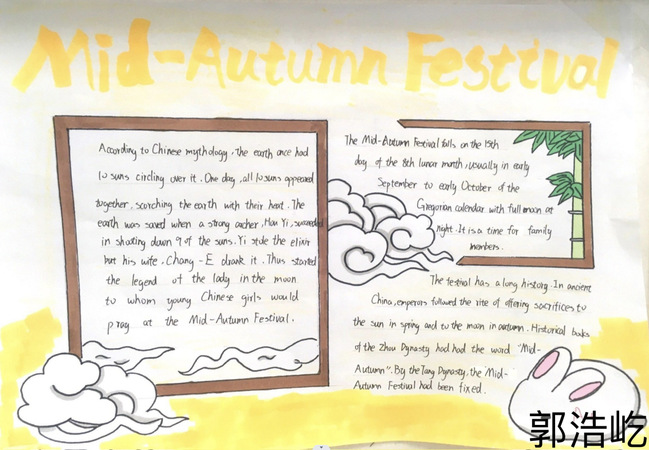 Mid-Autumn Festival
According to Chinese mythology, the earth once had
10 suns circling over it. One day, all 10 suns appeared
together, scorching the earth with their heat. The
earth was saved when a strong archer, Hou Yi, succeeded
in shooting down 9 of the suns. Yi stole the elixir
but his wife, Chang-E drank it. Thus started
the legend of the lady in the moon
to whom young Chinese girls would
pray at the Mid-Autumn Festival.
The Mid-Autumn Festival falls on the 15th
day of the 8th lunar month, usually in early
September to early October of the
Gregorian calendar with full moon at
night. It is a time for family
members.
The festival has a long history. In ancient
China, emperors followed the rite of offering sacrifices to
the sun in spring and to the moon in autumn. Historical books
of the Zhou Dynasty had had the word "Mid-
Autumn". By the Tang Dynasty, the Mid-
Autumn Festival had been fixed.
郭浩屹